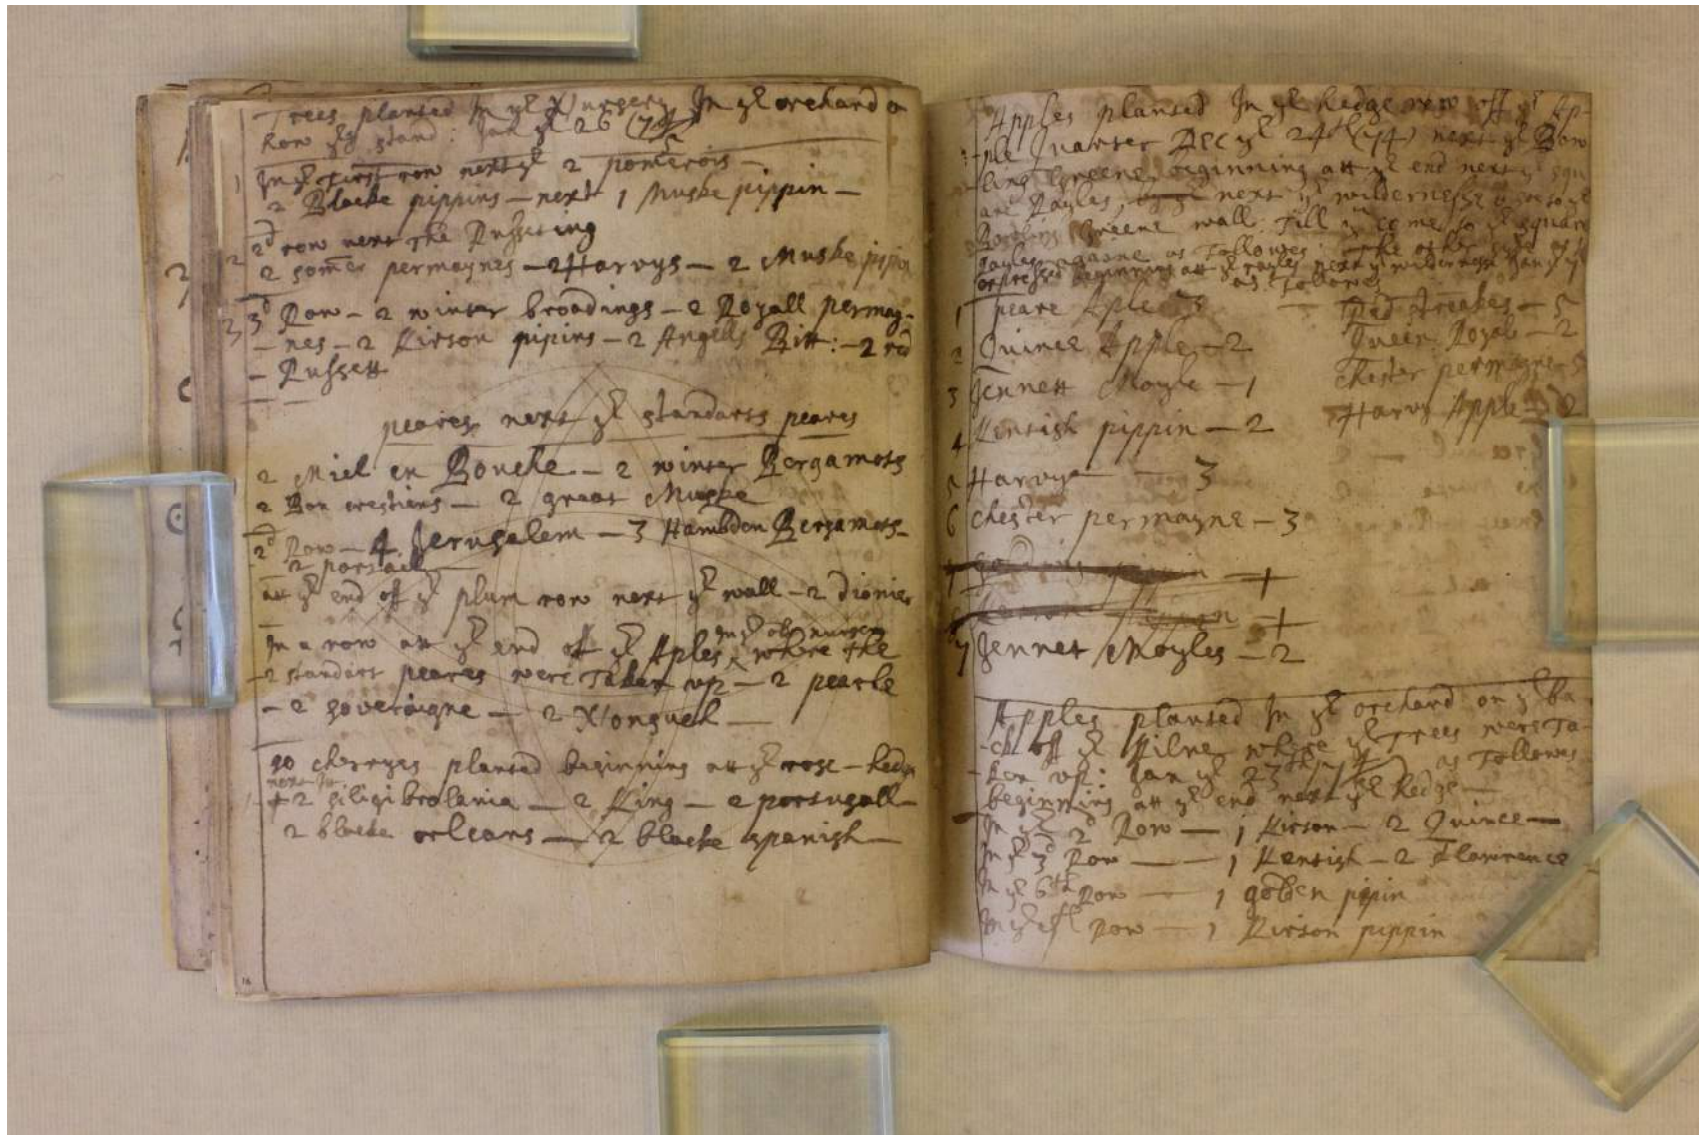 Trees planted In ye Nursery In ye orchard &
how yy stand: Jan ye 26 (74/5)
1 In ye first row next ye 2 pomerois —
2 Blacke pippins — next 1 Muske pippin —
2 2d row next The Russeting
2 somer permaynes — 2 Harvys — 2 Muske pipin
3 3d Row — 2 winter broadings — 2 Royall permay-
- nes — 2 Kirson pipins — 2 Angells Bitt: — 2 red
- Russett
peares next ye standarts peares
2 Miel en Bouche — 2 winter Bergamots
2 Bon crestiens — 2 great Muske
2d Row — 4 Jerusalem — 3 Hambdon Bergamots —
2 portail
att ye end off ye plum row next ye wall — 2 dionier
In ye old nursery
In a row att ye end off ye Aples, where the
2 standart peares were Taken up — 2 pearle
- 2 soveraigne — 2 Nonguell —
90 cherryes planted beginning att ye rose - hedge
next
2 siligibrolania — 2 King — 2 portugall —
2 blacke orleans — 2 blacke spanish —
Apples planted In ye hedge row off ye Ap-
-ple Quarter Dec ye 24th (74) next ye Bow
ling Greene, beginning att ye end next ye squ
are Rayles, next ye wildernesse
Greene wall. Till yu come to ye square
Rayles againe as Followes: The other side as
expressed beginning att ye rayles next ye wildernesse
as Followes
1 peare Aple 3 — Red streakes — 5
2 Quince Apple — 2 Queen Royal — 2
3 Jennett Moyle — 1 Chester permayne — 3
4 Kentish pippin — 2 Harvy Apple — 2
5 Harvye — 3
6 Chester permayne — 3
7 golding pippin — +
pippin — +
7 Jennet Moyles — 2
Apples planted In ye orchard on ye ba-
-ck off ye Kilne where ye Trees were Ta-
-ken up: Jan ye 23th as Followes
beginning att ye end next ye hedge —
In ye 2d Row — 1 Kirson — 2 Quince —
In ye 3d Row — 1 Kentish — 2 Flawrence
In ye 6th Row — 1 golden pipin
In ye Row — 1 Kirson pippin